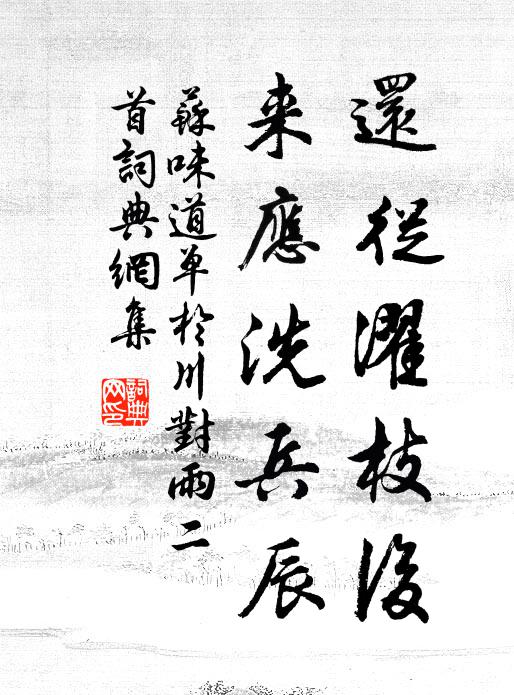 還從濯枝後
来應洗兵辰
蘇味道单於川對雨二
首詞典網集
詞典
网印